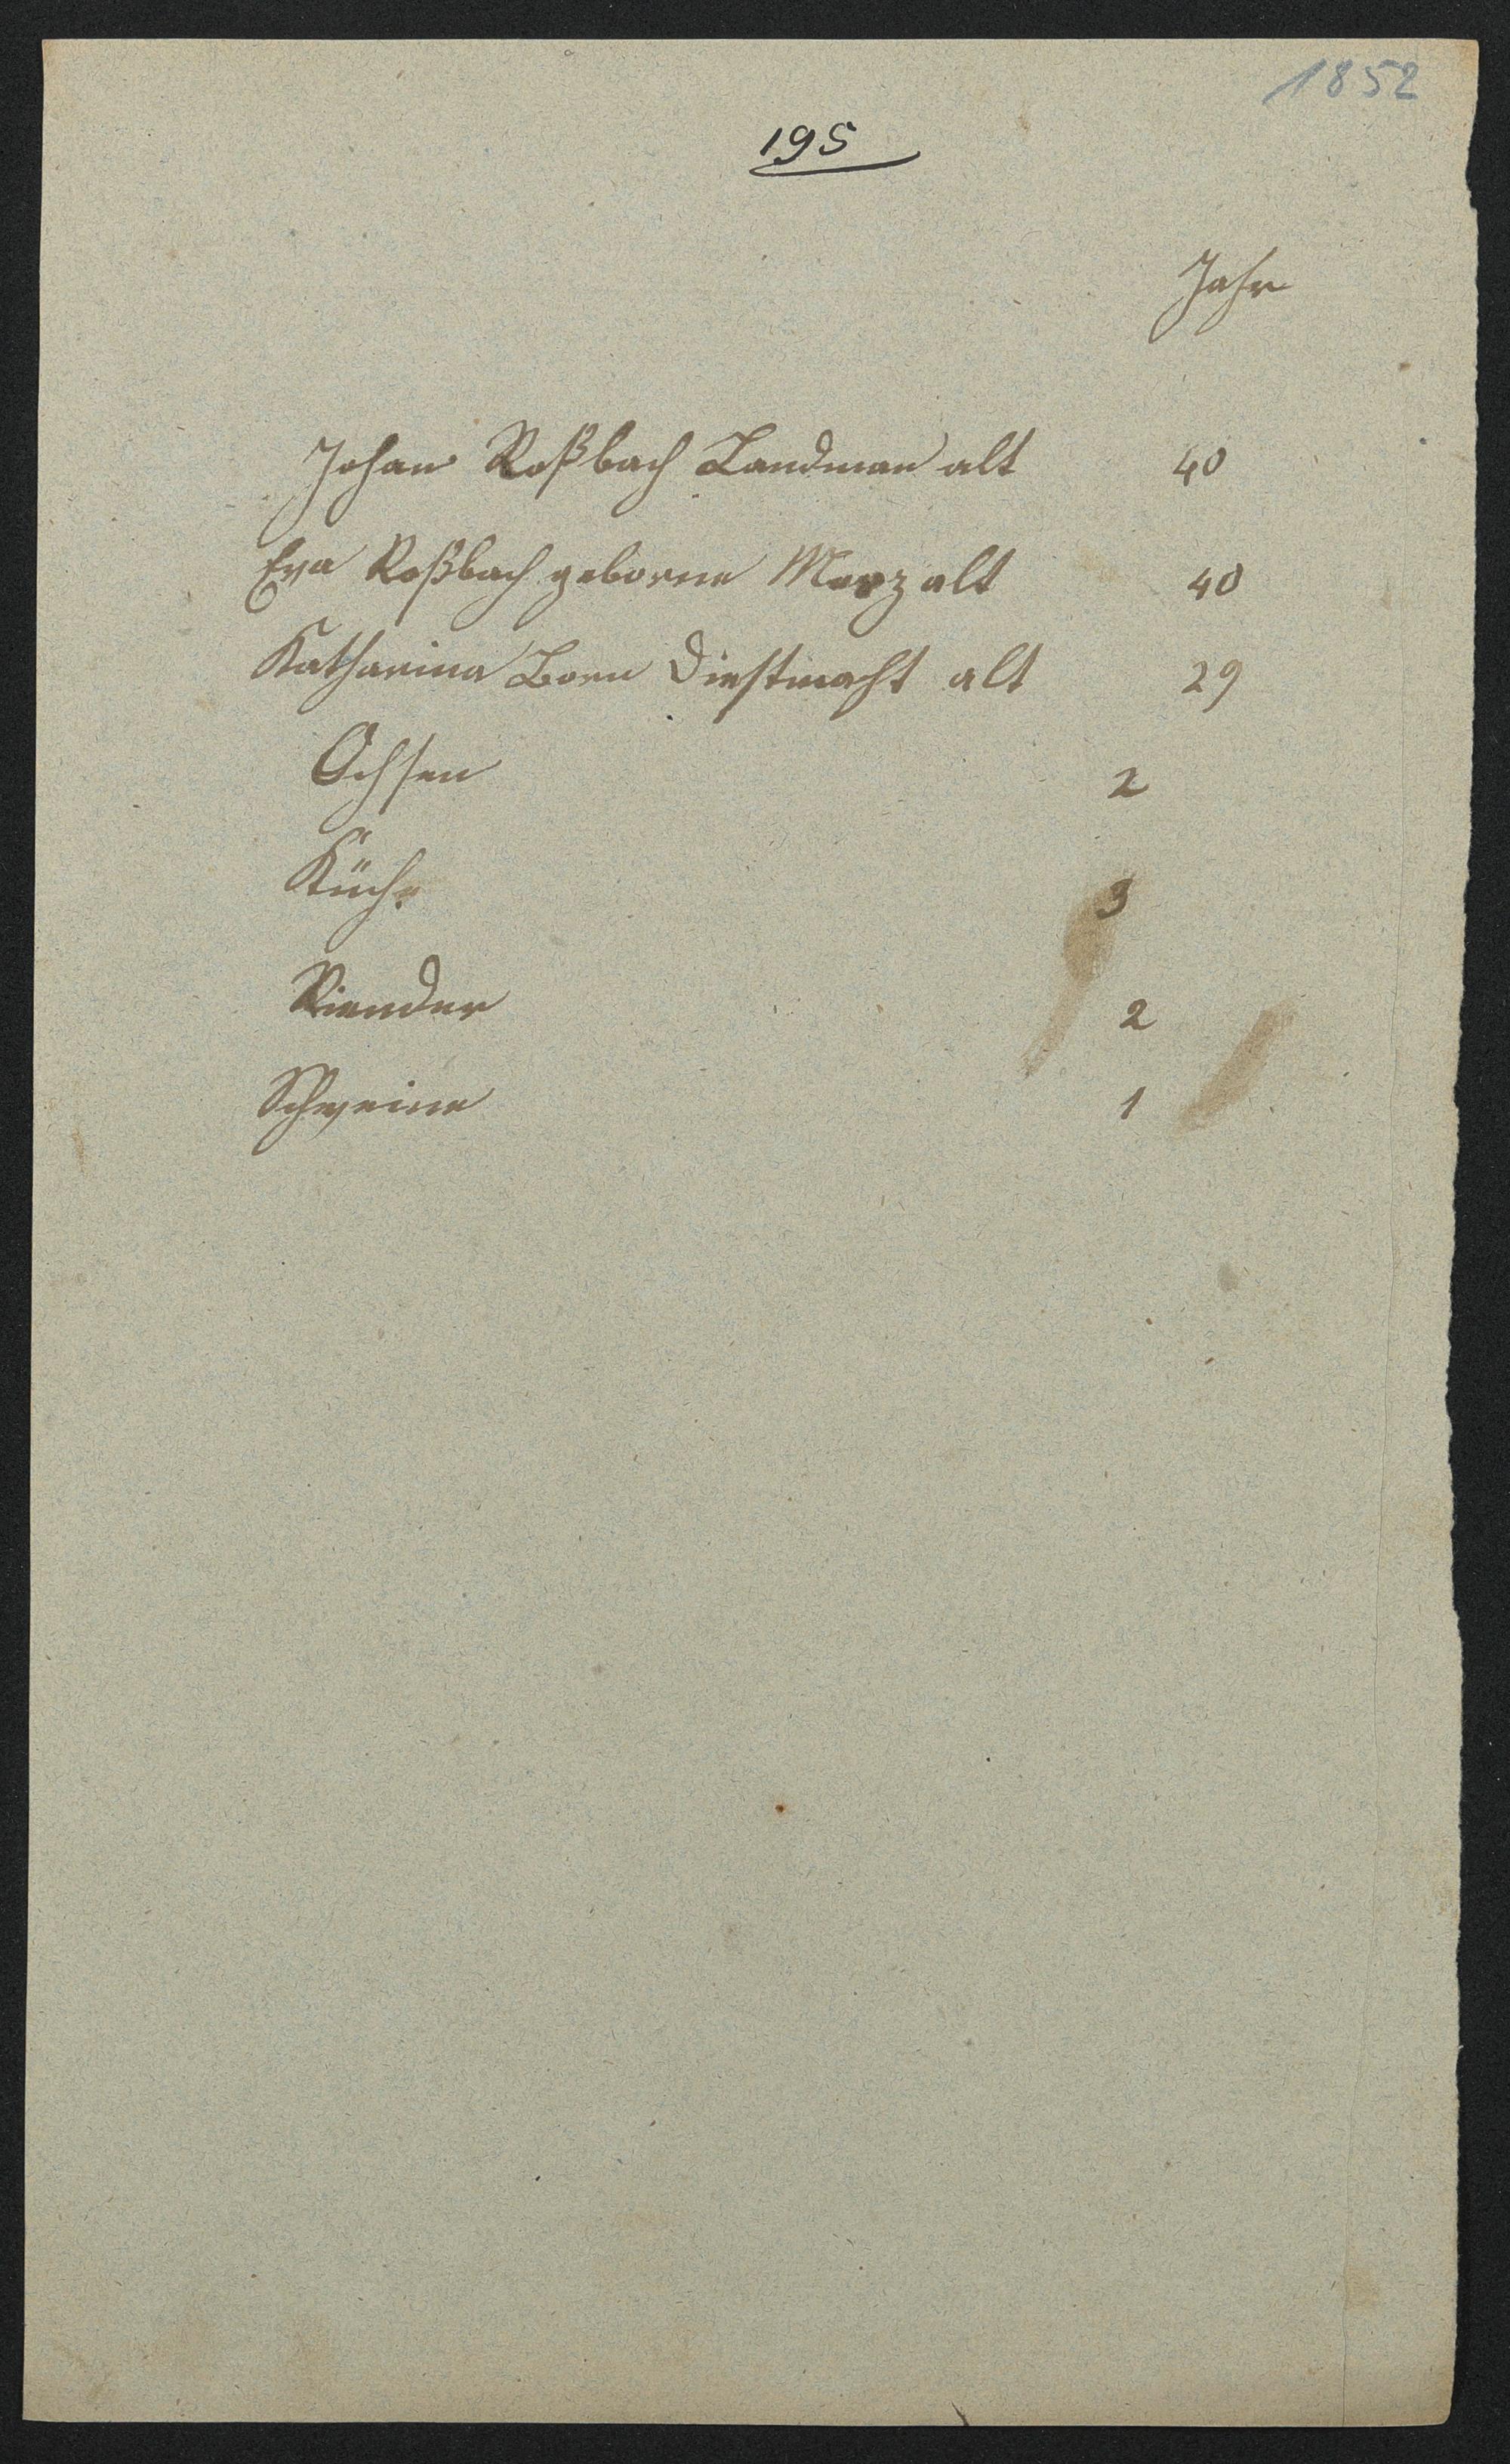 1852
195
Jahr
Johan Roßbach Landman alt 40
Eva Roßbach geborne Merz alt 40
Katharina Born Diestmaht alt 29
Ochsen 2
Küche 3
Riender 2
Schweine 1